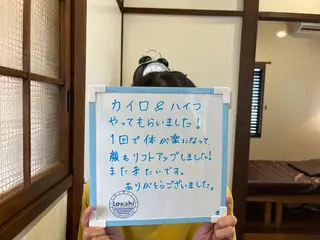 カイロ & ハイフ
やってもらいました!
1回で体が楽になって
顔もリフトアップしました!
また来たいです。
ありがとうございました。